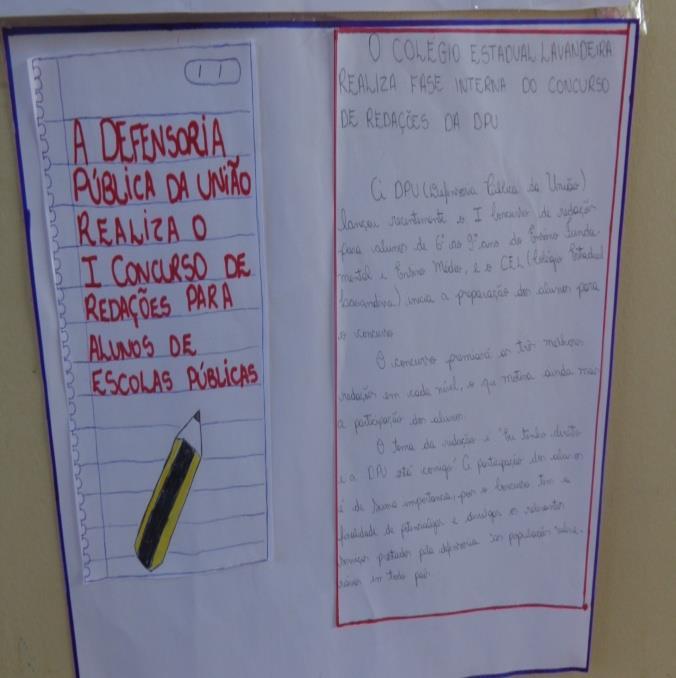 A DEFENSORIA
PÚBLICA DA UNIÃO
REALIZA O
I CONCURSO DE
REDAÇÕES PARA
ALUNOS DE
ESCOLAS PÚBLICAS
O COLÉGIO ESTADUAL LAVANDEIRA
REALIZA FASE INTERNA DO CONCURSO
DE REDAÇÕES DA DPU
A DPU (Defensoria Pública da União)
lançou recentemente o I Concurso de redações
para alunos de 6º ao 9º ano do Ensino Funda-
mental e Ensino Médio, e o CEL (Colégio Estadual
Lavandeira) inicia a preparação dos alunos para
o concurso.
O concurso premiará as três melhores
redações em cada nível, o que motiva ainda mais
a participação dos alunos.
O tema da redação é "Eu tenho direito
e a DPU está comigo" A participação dos alunos
é de suma importância, pois o Concurso tem a
finalidade de potencializar e divulgar os relevantes
serviços prestados pela defensoria às populações
em todo país.